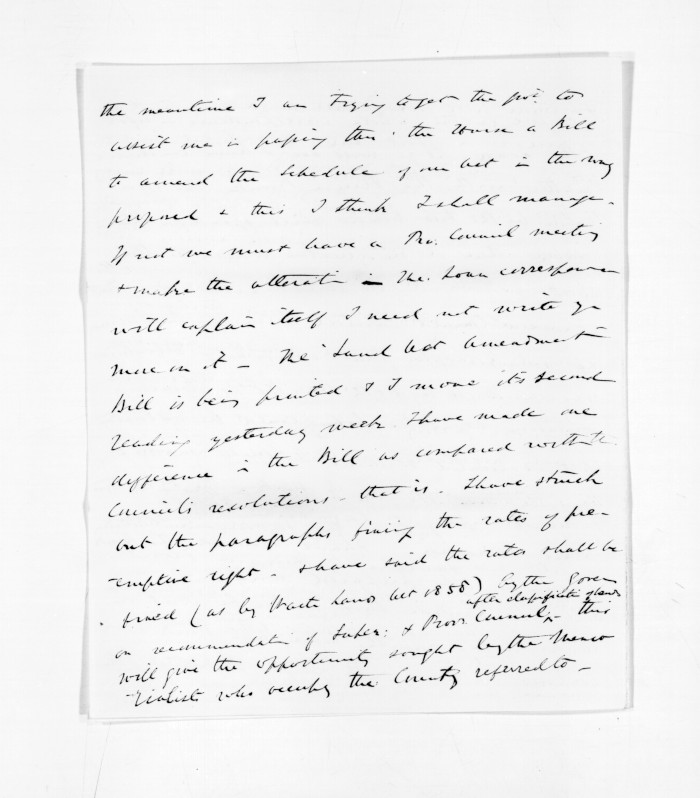 the meantime I am trying to get the govt. to
assist me in passing thro' the House a Bill
to amend the Schedule of our Act in the way
proposed & this I think I shall manage.
If not we must have a Pro. Council meeting
& make the alterati in The Loan correspon
will explain itself I need not write yo
more on it - The Land Act Amendment
Bill is being printed & I move its second
reading yesterday week. I have made one
difference in the Bill as compared with the
Councils resolutions. that is. I have struck
out the paragraphs fixing the rates of pre-
-emptive right - & have said the rates shall be
fixed (as by Waste Lands Act 1858) by the Govern
after classificatn of lands
on recommendati of Super: & Provl Council;- this
will give the opportunity sought by the Memo
-rialists who occupy the County referred to -